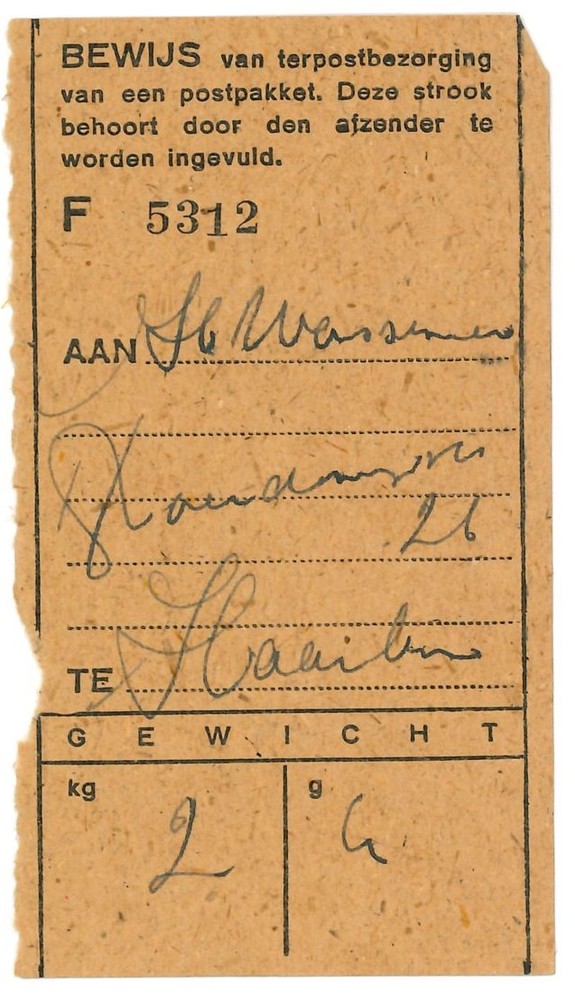 BEWIJS van terpostbezorging
van een postpakket. Deze strook
behoort door den afzender te
worden ingevuld.
F 5312
AAN
26
TE
GEWICHT
kg g
2